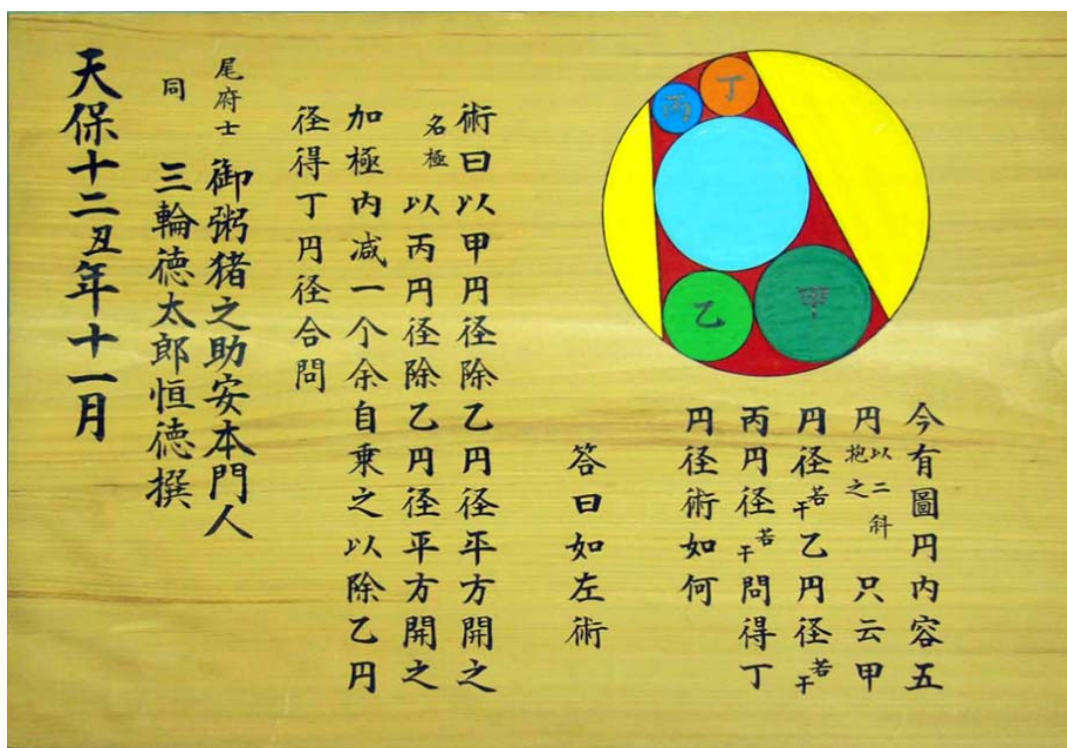 丁
丙
乙
甲
今有圖円内容五
円以二斜抱之只云甲
円径若干乙円径若干
丙円径若干問得丁
円径術如何
答曰如左術
術曰以甲円径除乙円径平方開之
名極以丙円径除乙円径平方開之
加極内减一个余自乗之以除乙円
径得丁円径合問
尾府士 御粥猪之助安本門人
同 三輪徳太郎恒徳撰
天保十二丑年十一月